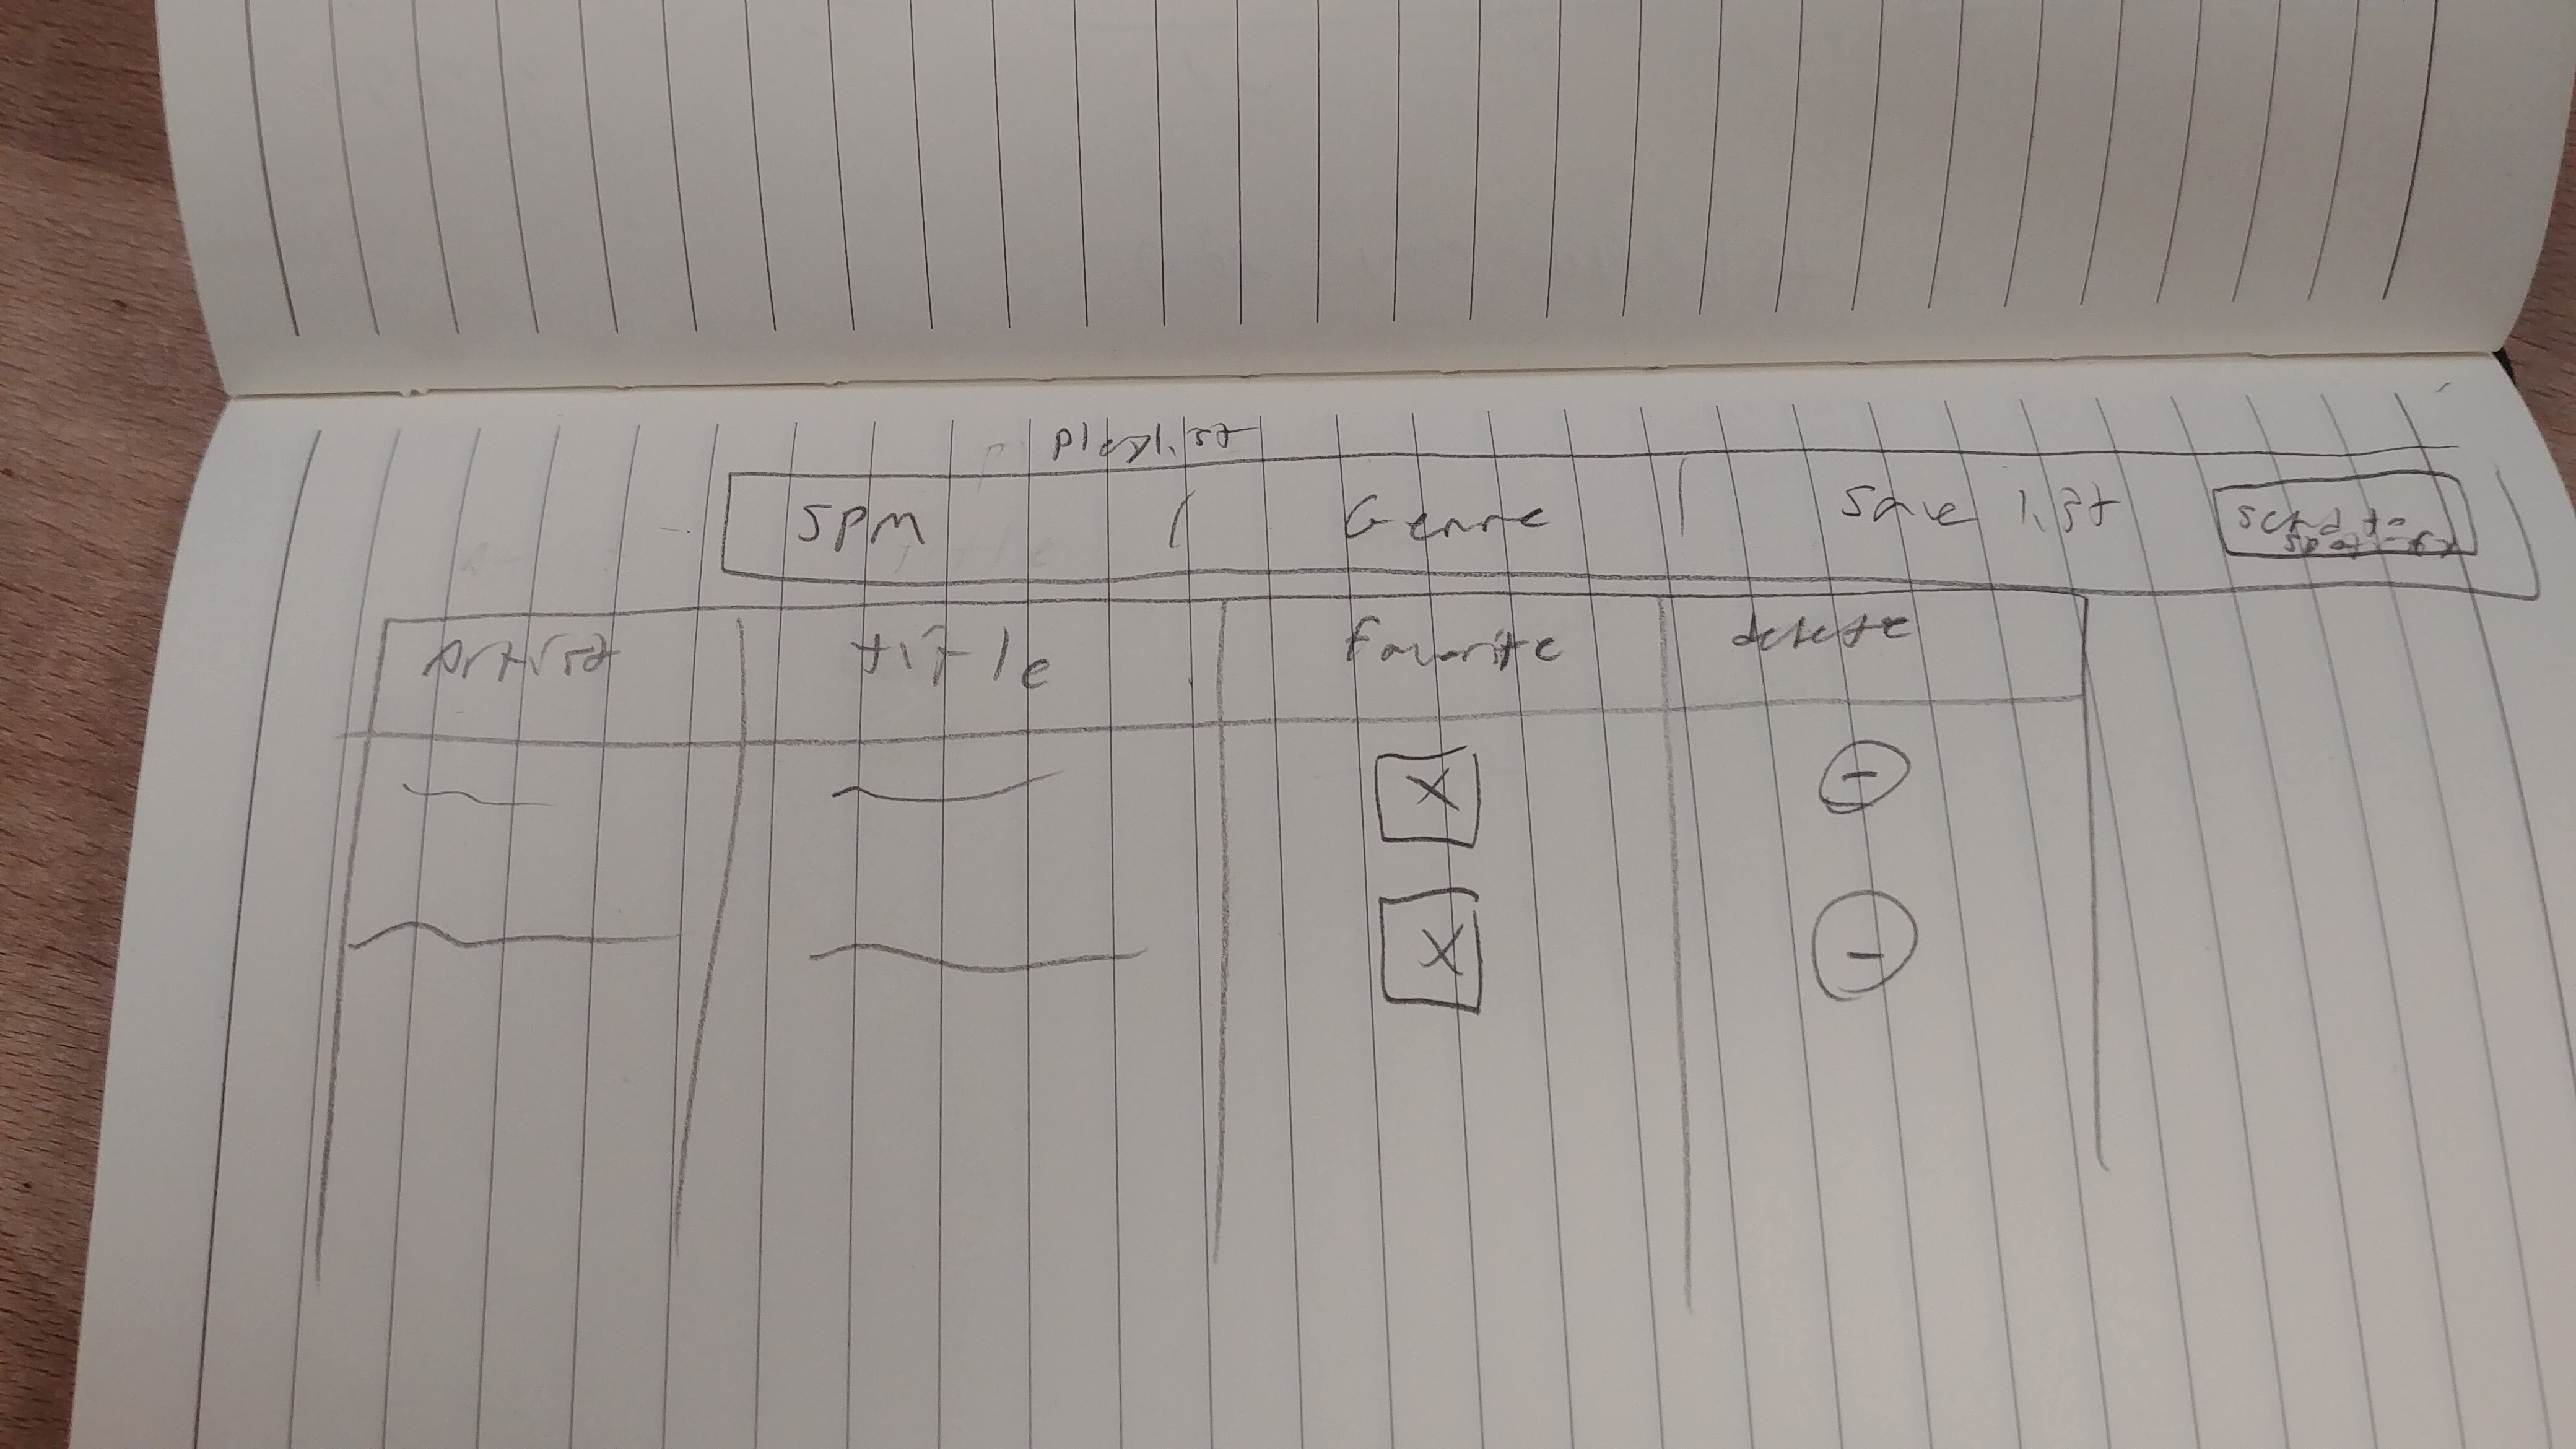 playlist
SPM | Genre | Save list
send to
spotify
Artist title favorite delete
X -
X -